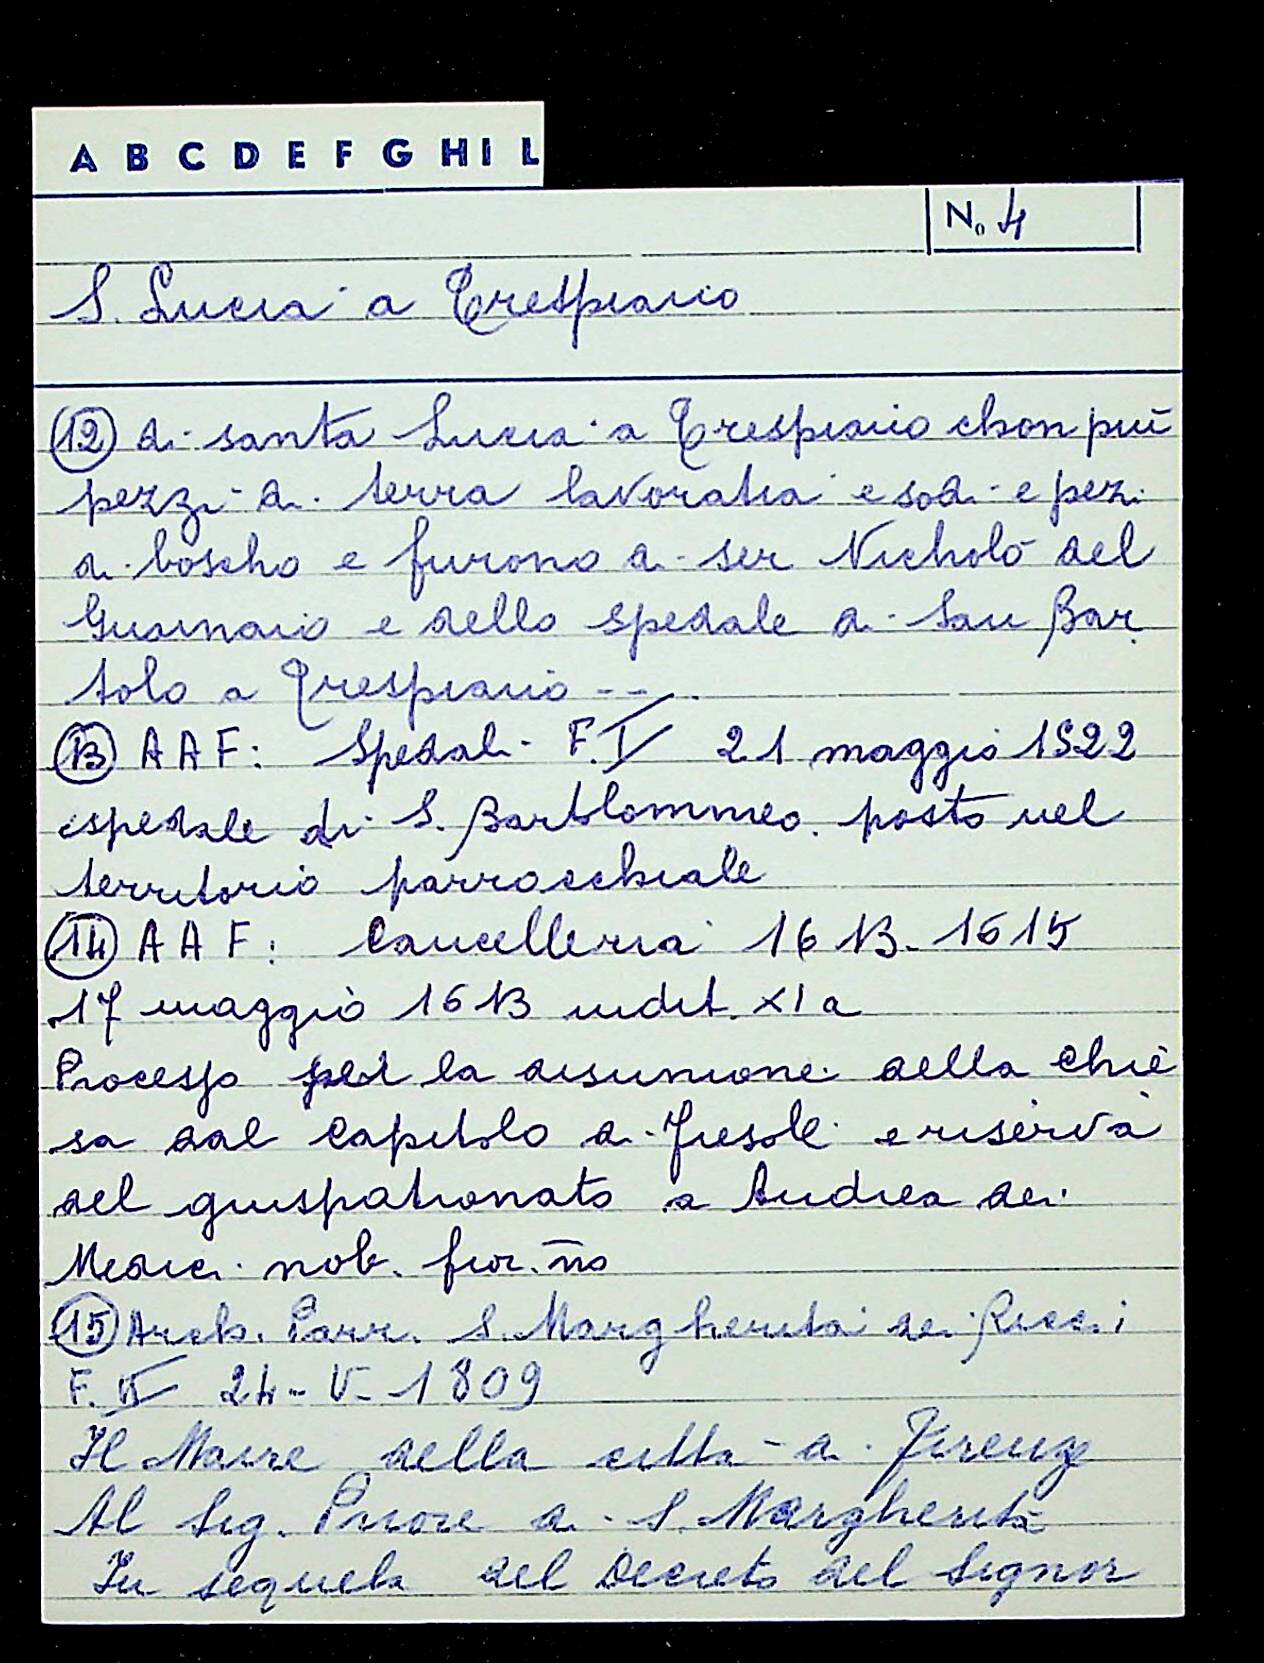 A B C D E F G H I L
No 4
S. Lucia a Trespiano
(12) di santa Lucia a Trespiano chon più
pezzi di terra lavoratia e sodi e pezi
di boscho e furono di ser Nicholò del
Guarnaio e dello spedale di San Bar
tolo a Trespiano --.
(13) A A F: Spedali F. IV 21 maggio 1522
espedale di S. Bartolommeo posto nel
territorio parrocchiale
(14) A A F: Cancelleria 1613-1615
17 maggio 1613 indit. XIa
Processo per la disunione della chie
sa dal Capitolo di Fiesole e riserva
del giuspatronato a Andrea dei
Medici nob. fior.no
(15) Arch. Parr. S. Margherita dei Ricci
F. II 24-V-1809
Il Maire della città di Firenze
Al Sig. Priore di S. Margherita
In sequela del Decreto del Signor